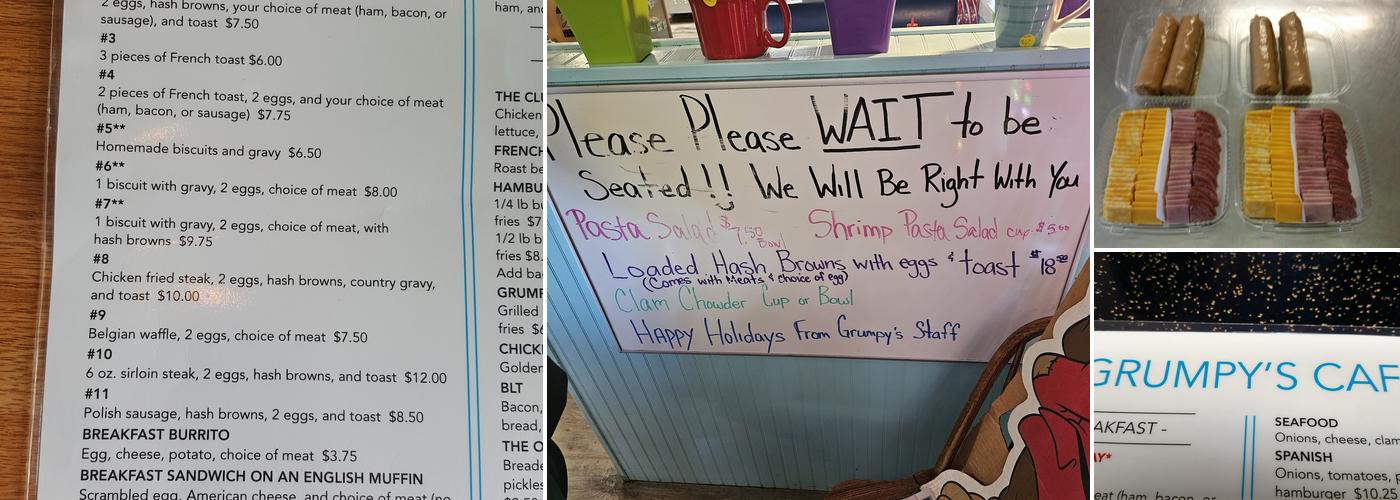 2 eggs, hash browns, your choice of meat (ham, bacon, or
sausage), and toast $7.50
#3
3 pieces of French toast $6.00
#4
2 pieces of French toast, 2 eggs, and your choice of meat
(ham, bacon, or sausage) $7.75
#5**
Homemade biscuits and gravy $6.50
#6**
1 biscuit with gravy, 2 eggs, choice of meat $8.00
#7**
1 biscuit with gravy, 2 eggs, choice of meat, with
hash browns $9.75
#8
Chicken fried steak, 2 eggs, hash browns, country gravy,
and toast $10.00
#9
Belgian waffle, 2 eggs, choice of meat $7.50
#10
6 oz. sirloin steak, 2 eggs, hash browns, and toast $12.00
#11
Polish sausage, hash browns, 2 eggs, and toast $8.50
BREAKFAST BURRITO
Egg, cheese, potato, choice of meat $3.75
BREAKFAST SANDWICH ON AN ENGLISH MUFFIN
Scrambled egg, American cheese, and choice of meat (no
ham, and
THE CLU
Chicken
lettuce,
FRENCH
Roast be
HAMBU
1/4 lb b
fries $7
1/2 lb b
fries $8.
Add bac
GRUMP
Grilled
fries $6
CHICK
Golden
BLT
Bacon,
bread,
THE O
Breade
pickles
Please Please WAIT to be
Seated!! We Will Be Right With You
Pasta Salad $7.50 Bowl Shrimp Pasta Salad cup $5.00
Loaded Hash Browns with eggs & toast $18.00
(Comes with Meats & choice of egg)
Clam Chowder Cup or Bowl
Happy Holidays From Grumpy's Staff
GRUMPY'S CAF
AKFAST -
AY*
eat (ham, bacon, or
SEAFOOD
Onions, cheese, clam
SPANISH
Onions, tomatoes,
hamburger $10.25